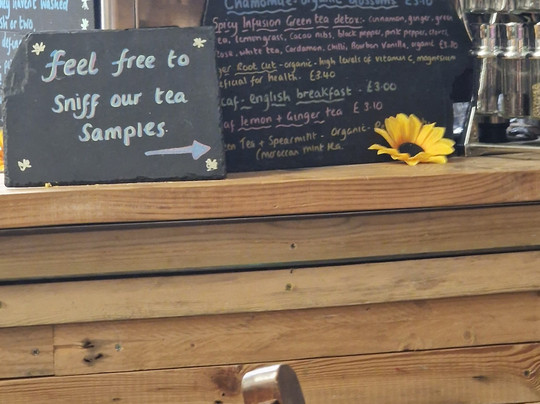 haven't washed
feel free to
sniff our tea
samples.
Chamomile - organic blossoms £3.40
Spicy Infusion Green tea detox:- cinnamon, ginger, green
tea, lemongrass, cacao nibs, black pepper, pink pepper, cloves,
white tea, Cardamon, chilli, Bourbon Vanilla, organic £3.20
Root Cut - organic - high levels of vitamin c, magnesium
for health. £3.40
English breakfast - £3.00
lemon + Ginger tea £ 3.10
Tea + Spearmint - Organic
(moroccan mint tea.